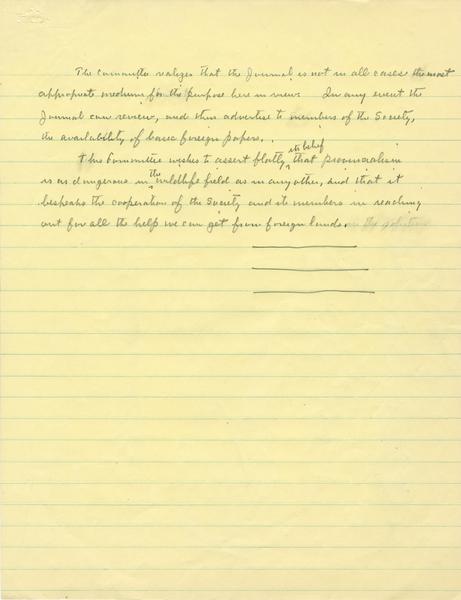 The Committee realizes that the Journal is not in all cases the most
appropriate medium for the purpose here in view. In any event the
Journal can review, and thus advertise to members of the Society,
the availability of basic foreign papers.
This Committee wishes to assert flatly its belief that provincialism
is as dangerous in the wildlife field as in any other, and that it
bespeaks the cooperation of the Society and its members in reaching
out for all the help we can get from foreign lands.